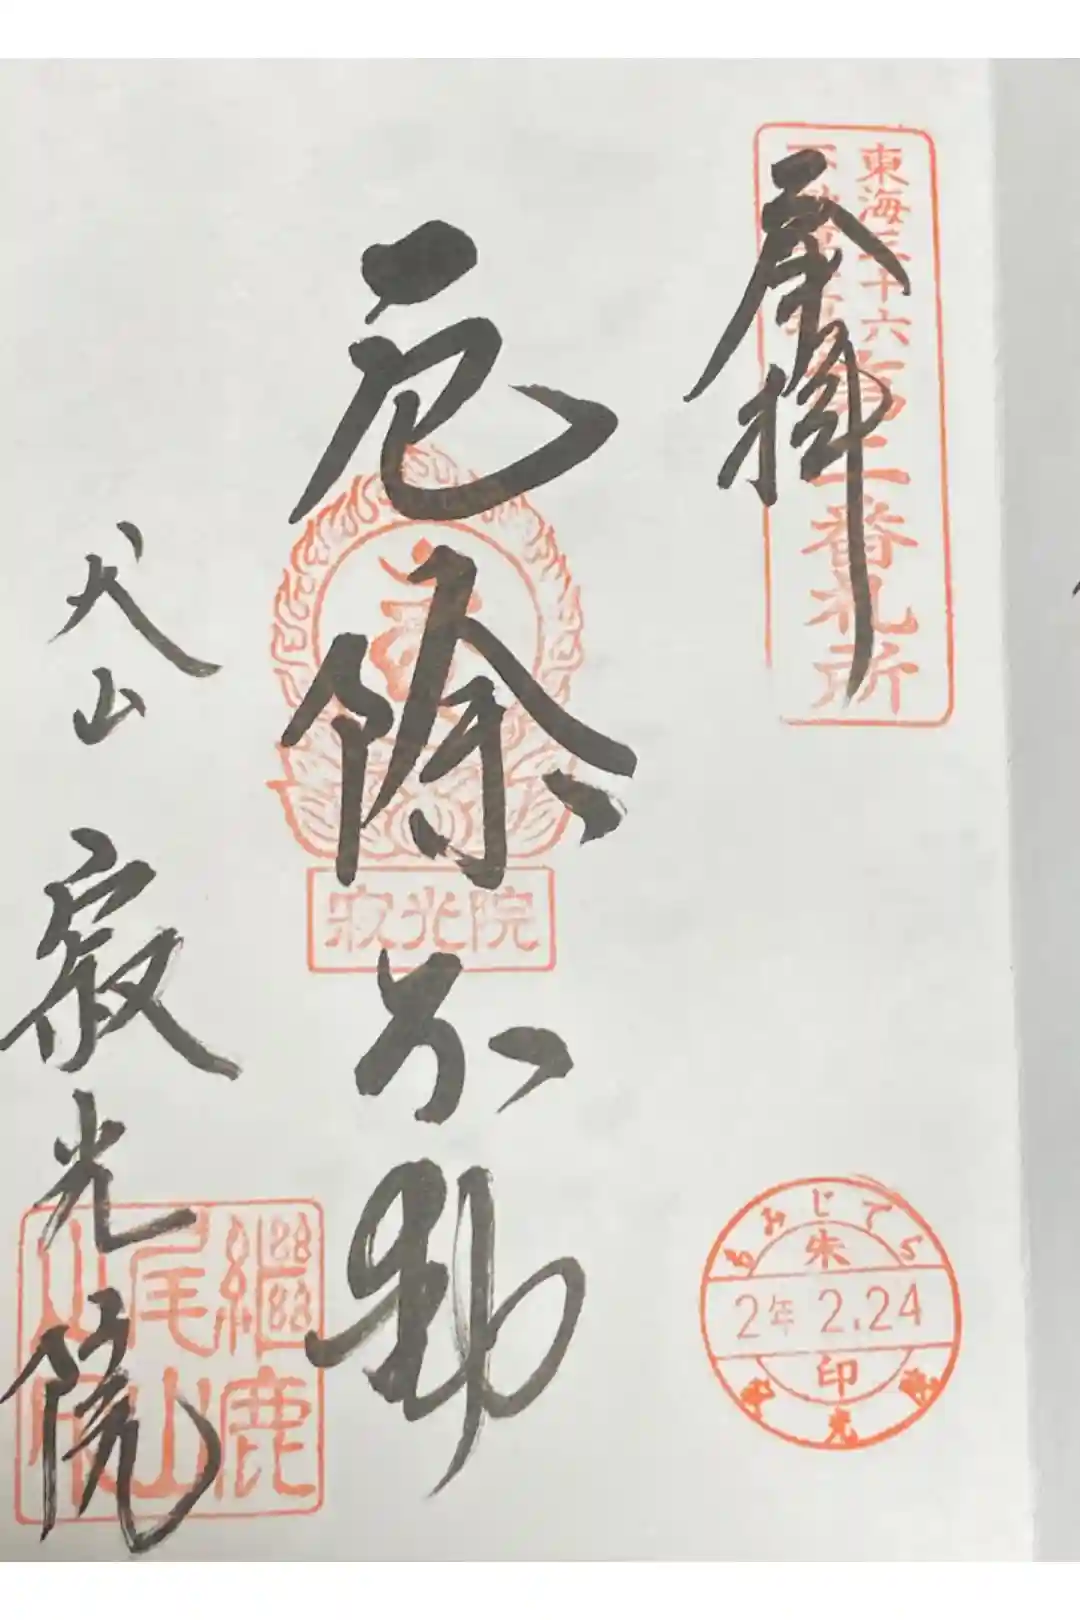 東海三十六
不動尊霊場
第二番札所
奉拝
厄除不動
寂光院
犬山 寂光院
継鹿
尾山
もみじでら
朱
2年 2.24
印
寂光院